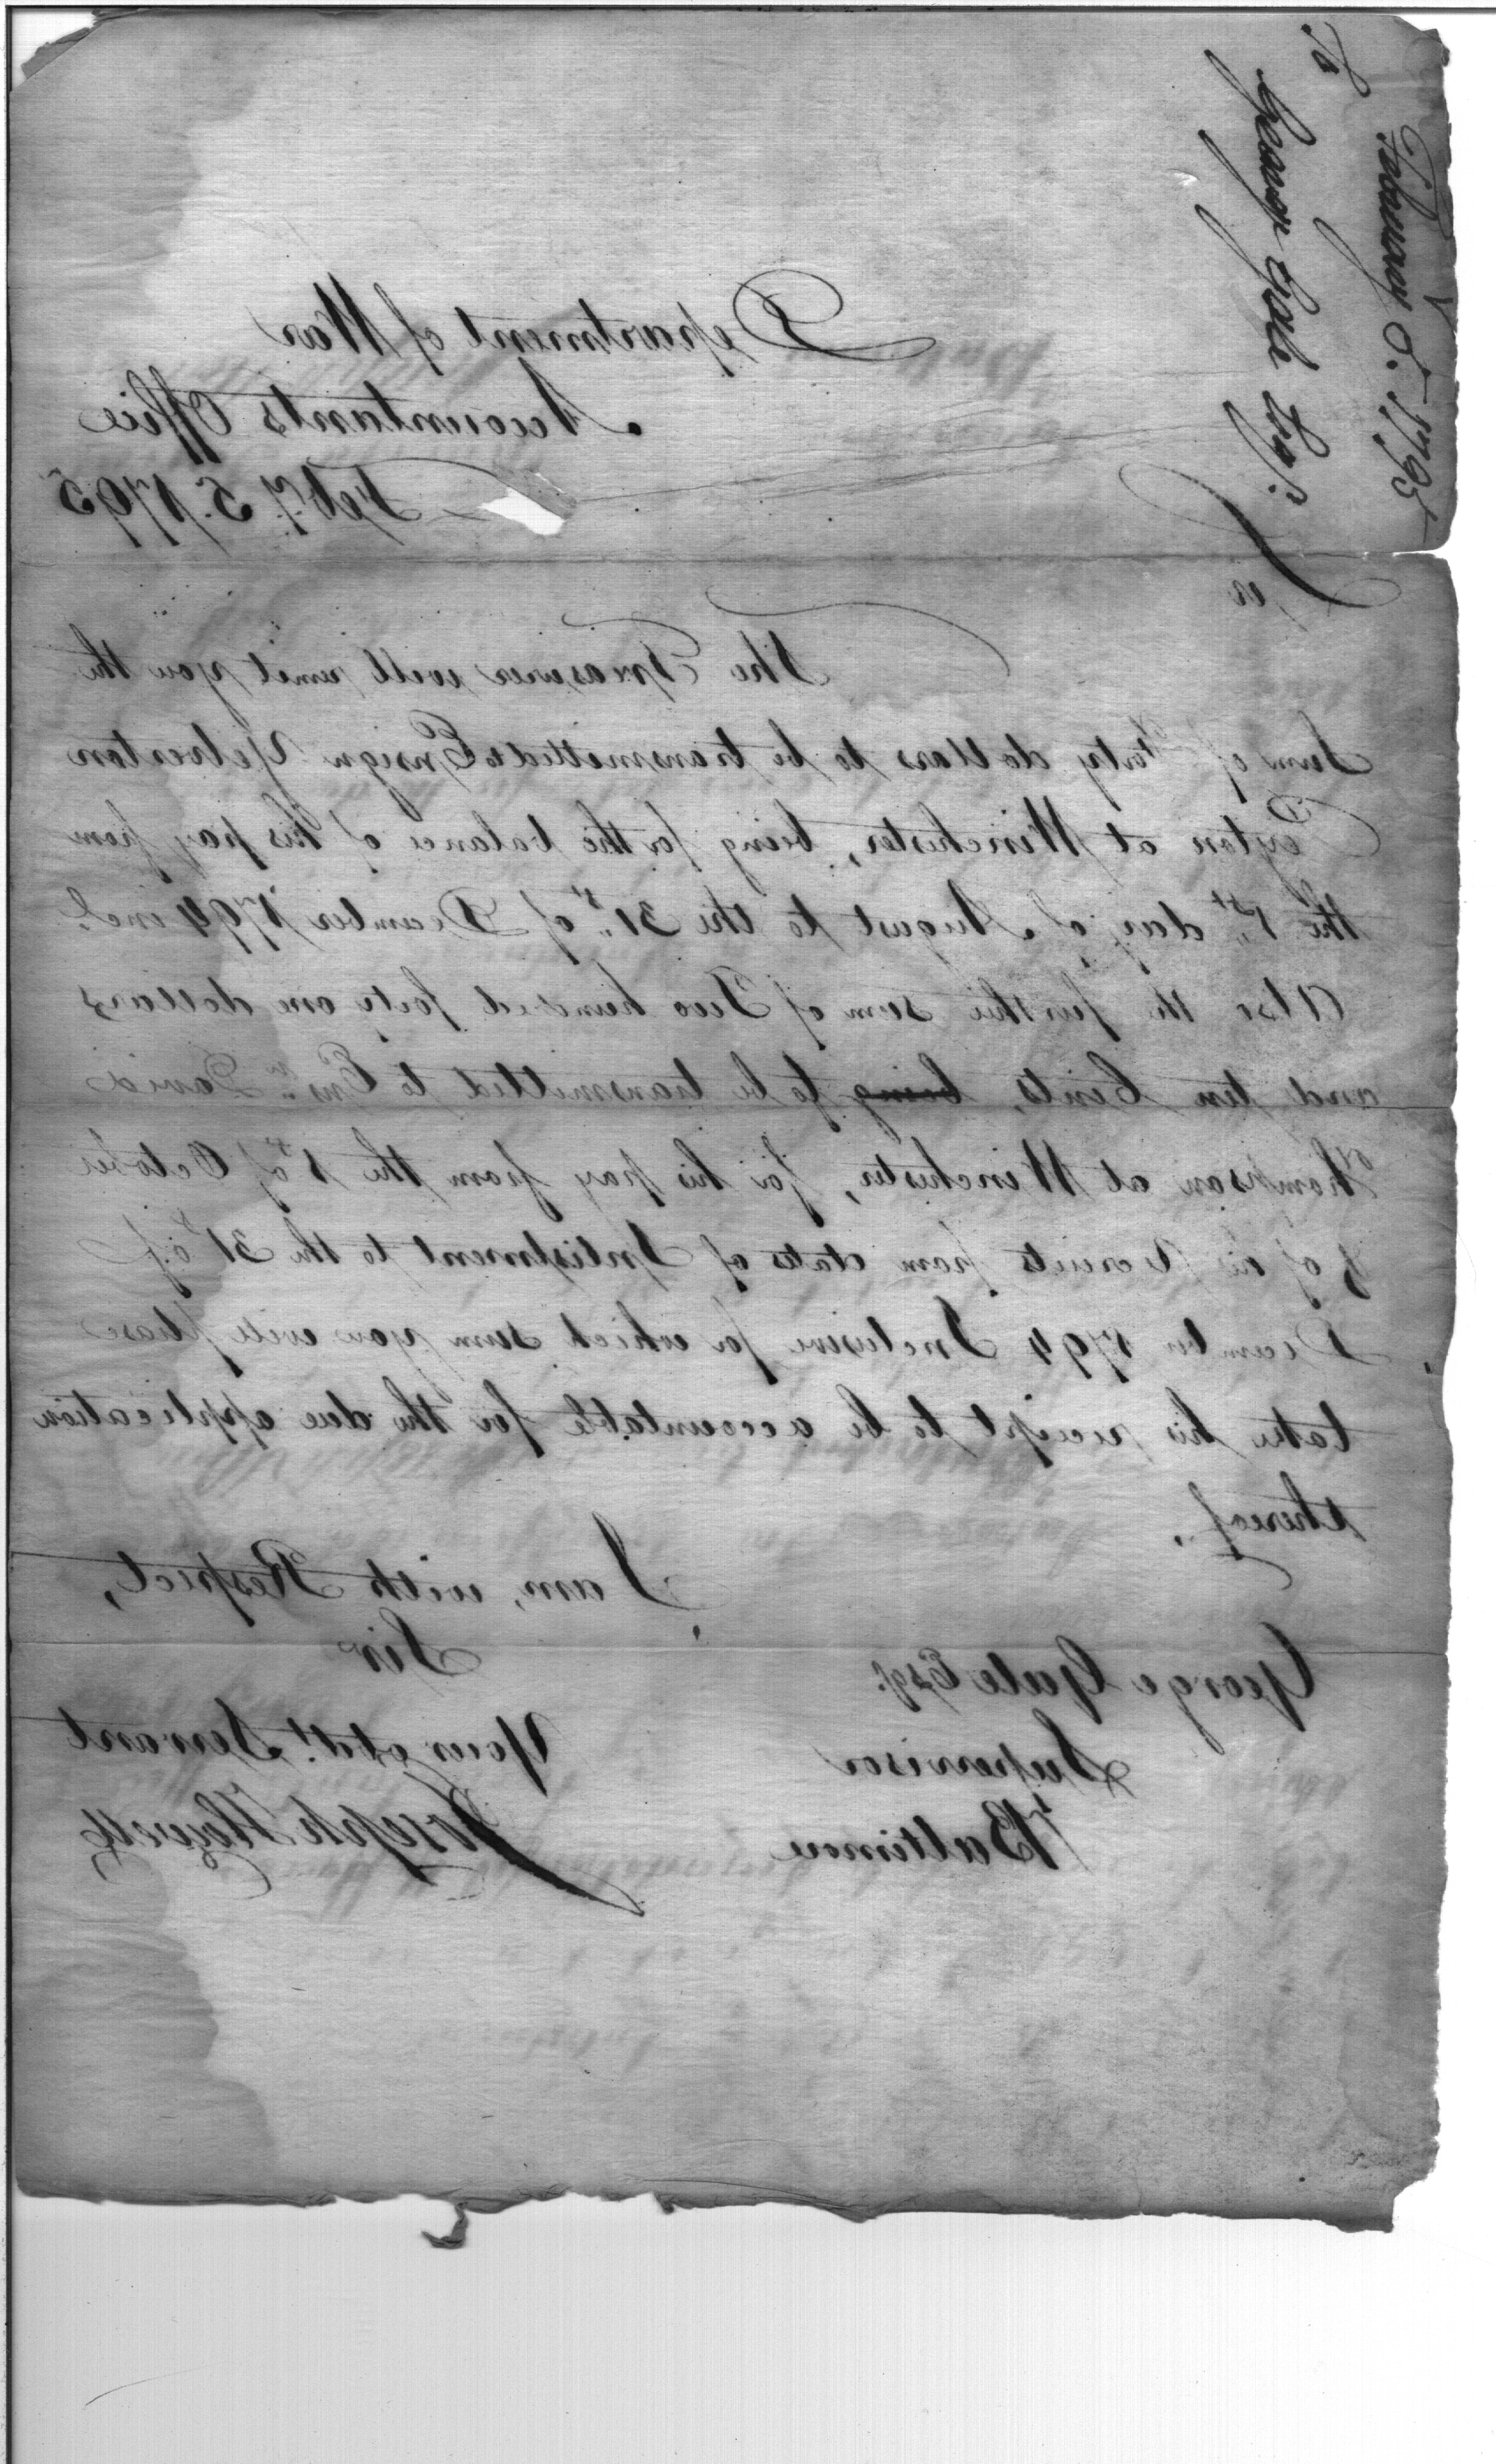 To
George Gale Esqr.
February 5. 1795
Department of War
Accountants Office
Feby. 5. 1795
Sir
The Treasurer will remit you the
Sum of Forty dollars to be transmitted to Ensign Yelverton
Peyton at Winchester, being for the balance of his pay from
the 1st. day of August to the 31st. of December 1794 incl.
Also the further sum of Two hundred forty one dollars
and ten Cents, being to be transmitted to Ensn. David
Thompson at Winchester, for his pay from the 1st of October
& of his Recruits from dates of Inlistment to the 31st of
December 1794 Inclusive for which sum you will please
take his receipt to be accountable for the due application
thereof.
I am, with Respect,
Sir
Your obdt. Servant
Joseph Howell
George Gale Esqr.
Supervisor
Baltimore